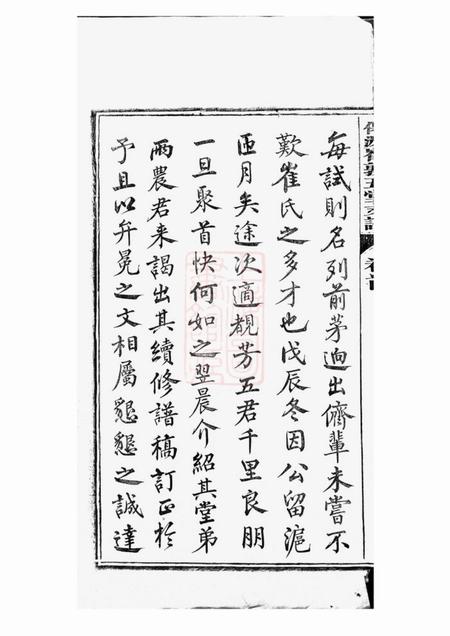 每試則名列前茅迥出儕輩未嘗不
歎崔氏之多才也戊辰冬因公留滬
匝月矣途次適覩芳五君千里良朋
一旦聚首快何如之翌晨介紹其堂弟
雨農君来謁出其續修譜稿訂正於
予且以弁冕之文相屬懇懇之誠達